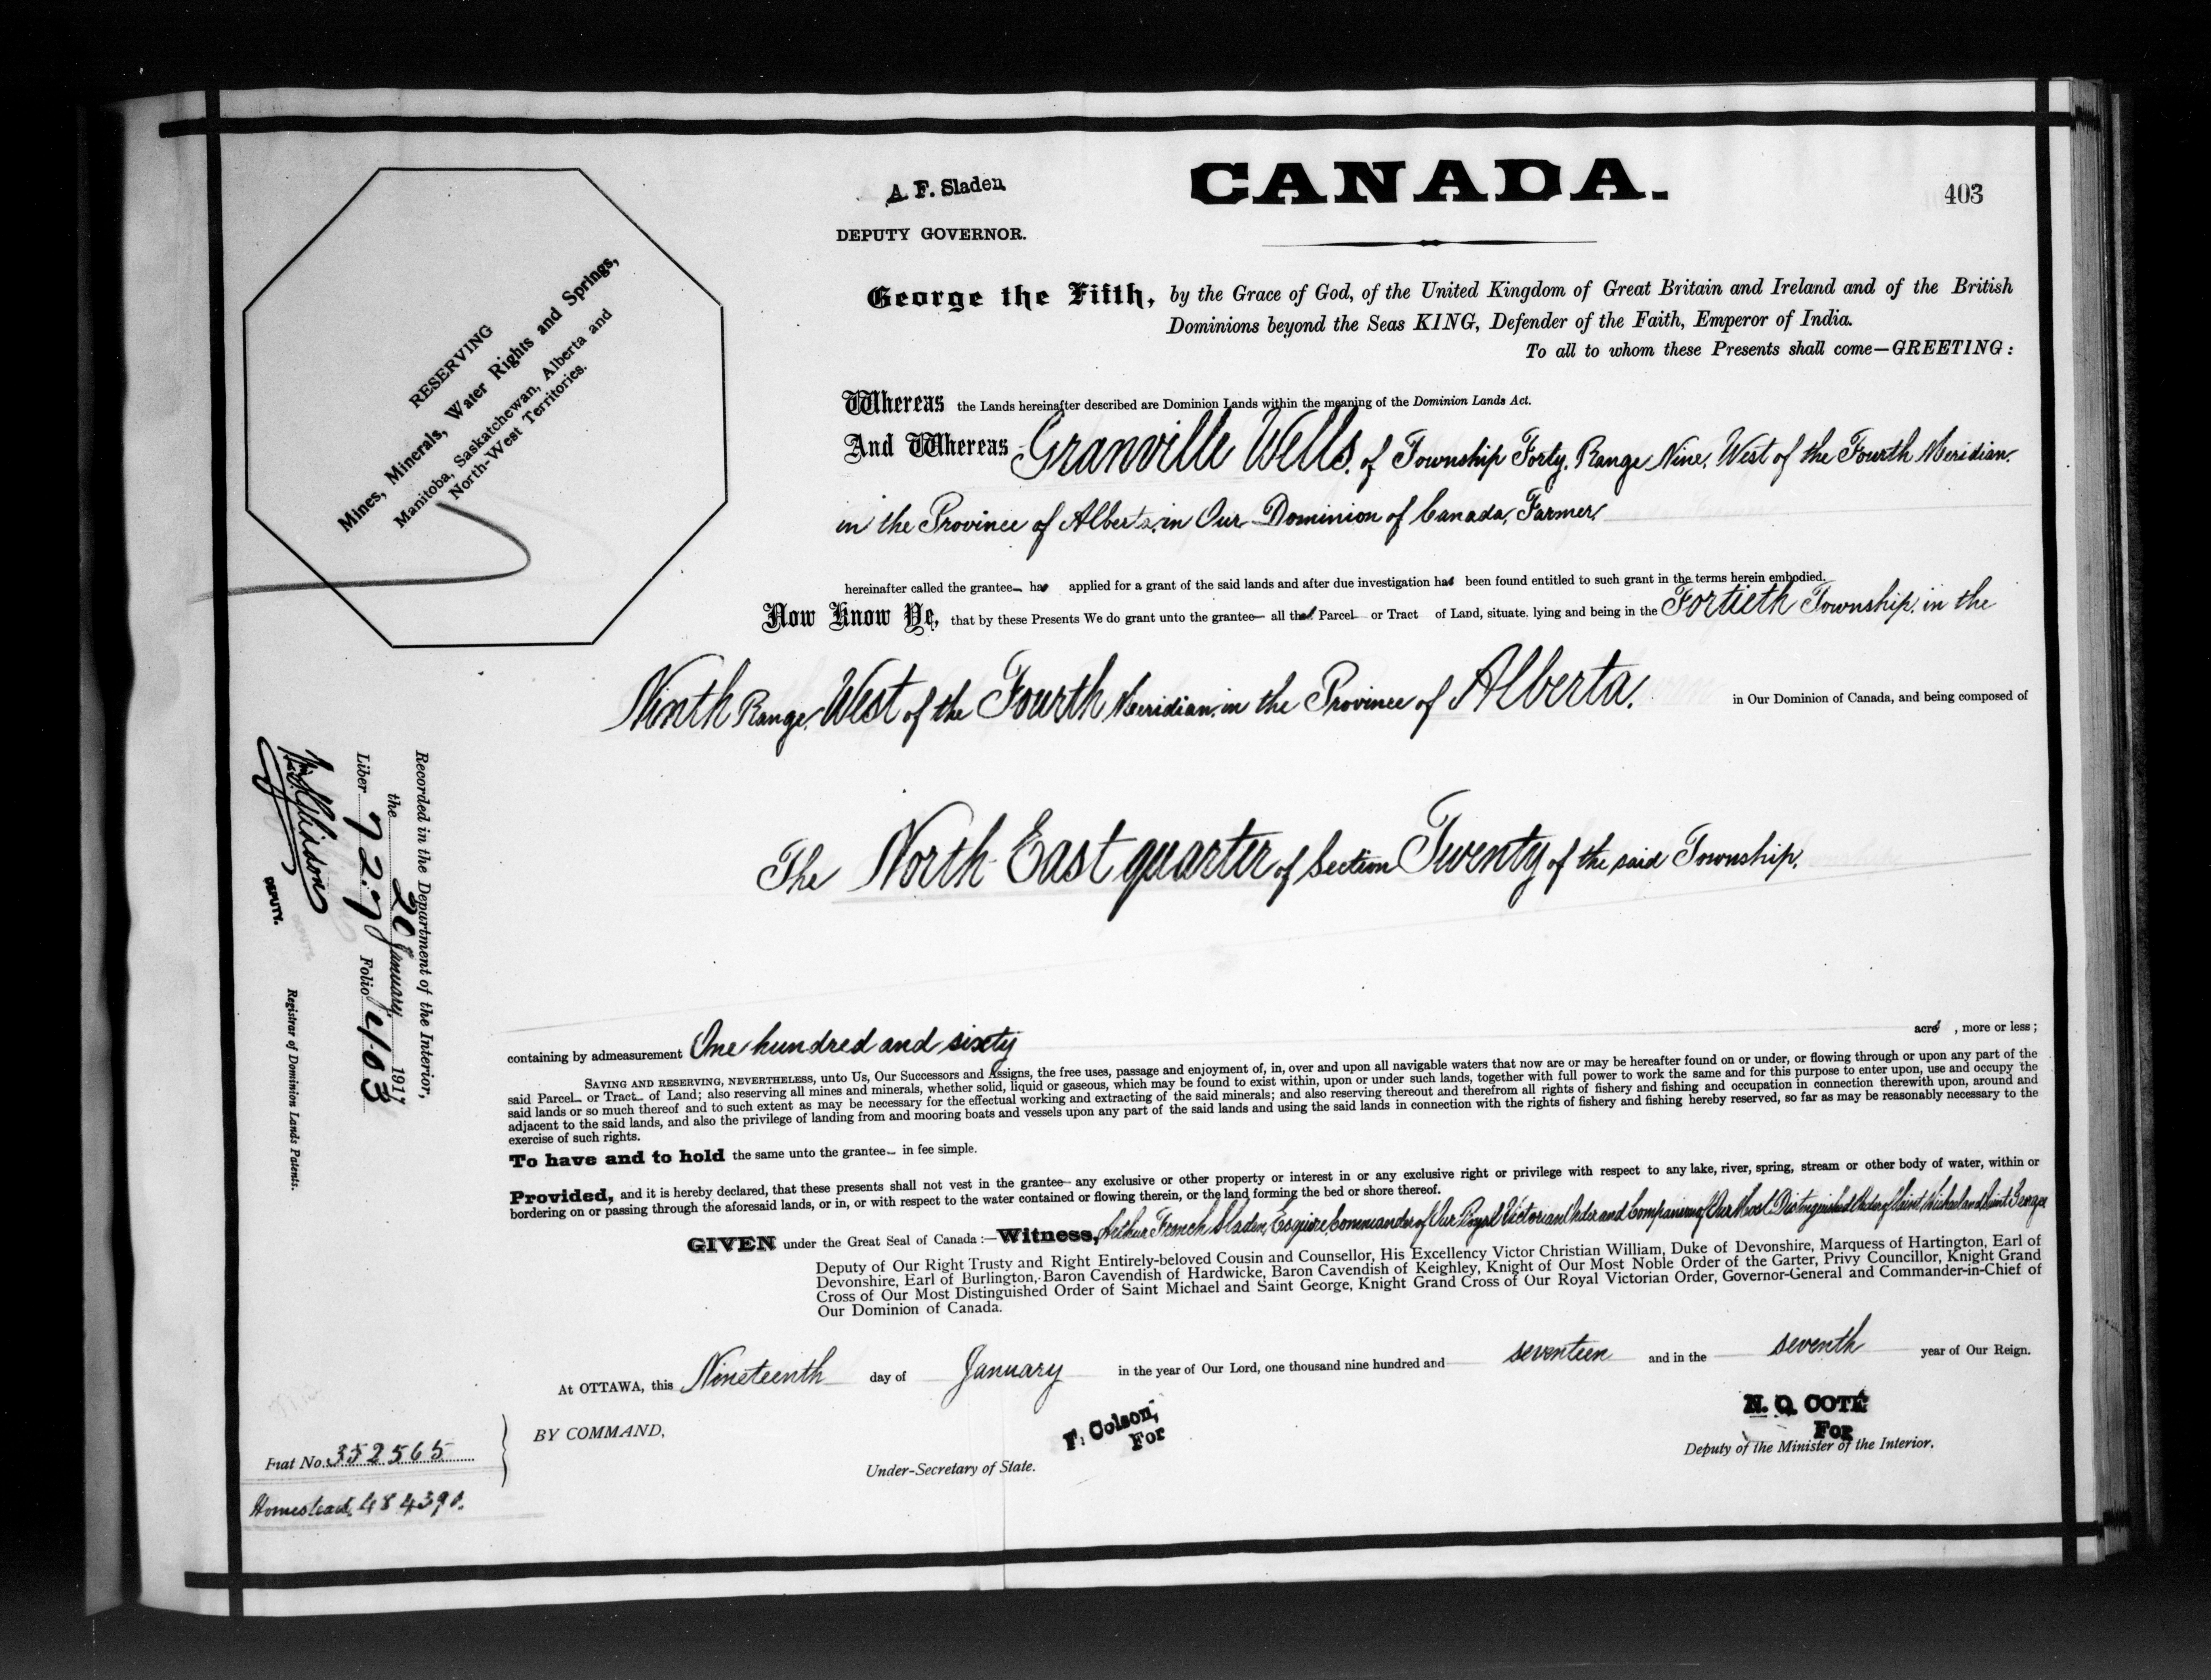 A. F. Sladen
DEPUTY GOVERNOR.
CANADA.
403
RESERVING
Mines, Minerals, Water Rights and Springs,
Manitoba, Saskatchewan, Alberta and
North-West Territories.
George the Fifth, by the Grace of God, of the United Kingdom of Great Britain and Ireland and of the British
Dominions beyond the Seas KING, Defender of the Faith, Emperor of India.
To all to whom these Presents shall come—GREETING:
Whereas the Lands hereinafter described are Dominion Lands within the meaning of the Dominion Lands Act.
And Whereas Granville Wells, of Township Forty, Range Nine, West of the Fourth Meridian,
in the Province of Alberta, in Our Dominion of Canada, Farmer,
hereinafter called the grantee has applied for a grant of the said lands and after due investigation has been found entitled to such grant in the terms herein embodied.
Now Know Ye, that by these Presents We do grant unto the grantee all that Parcel or Tract of Land, situate, lying and being in the Fortieth Township, in the
Ninth Range, West of the Fourth Meridian, in the Province of Alberta, in Our Dominion of Canada, and being composed of
The North East quarter of Section Twenty of the said Township,
containing by admeasurement One hundred and sixty acres, more or less;
SAVING AND RESERVING, NEVERTHELESS, unto Us, Our Successors and Assigns, the free uses, passage and enjoyment of, in, over and upon all navigable waters that now are or may be hereafter found on or under, or flowing through or upon any part of the
said Parcel or Tract of Land; also reserving all mines and minerals, whether solid, liquid or gaseous, which may be found to exist within, upon or under such lands, together with full power to work the same and for this purpose to enter upon, use and occupy the
said lands or so much thereof and to such extent as may be necessary for the effectual working and extracting of the said minerals; and also reserving thereout and therefrom all rights of fishery and fishing and occupation in connection therewith upon, around and
adjacent to the said lands, and also the privilege of landing from and mooring boats and vessels upon any part of the said lands and using the said lands in connection with the rights of fishery and fishing hereby reserved, so far as may be reasonably necessary to the
exercise of such rights.
To have and to hold the same unto the grantee in fee simple.
Provided, and it is hereby declared, that these presents shall not vest in the grantee any exclusive or other property or interest in or any exclusive right or privilege with respect to any lake, river, spring, stream or other body of water, within or
bordering on or passing through the aforesaid lands, or in, or with respect to the water contained or flowing therein, or the land forming the bed or shore thereof.
GIVEN under the Great Seal of Canada:—Witness, Arthur French Sladen, Esquire, Commander of Our Royal Victorian Order and Companion of Our Most Distinguished Order of Saint Michael and Saint George
Deputy of Our Right Trusty and Right Entirely-beloved Cousin and Counsellor, His Excellency Victor Christian William, Duke of Devonshire, Marquess of Hartington, Earl of
Devonshire, Earl of Burlington, Baron Cavendish of Hardwicke, Baron Cavendish of Keighley, Knight of Our Most Noble Order of the Garter, Privy Councillor, Knight Grand
Cross of Our Most Distinguished Order of Saint Michael and Saint George, Knight Grand Cross of Our Royal Victorian Order, Governor-General and Commander-in-Chief of
Our Dominion of Canada.
At OTTAWA, this Nineteenth day of January in the year of Our Lord, one thousand nine hundred and seventeen and in the seventh year of Our Reign.
BY COMMAND,
F. Colson,
For
Under-Secretary of State.
N. O. COTÉ
For
Deputy of the Minister of the Interior.
Recorded in the Department of the Interior,
the 20 January 1917
Liber 727 Folio 403
DEPUTY.
Registrar of Dominion Lands Patents.
Fiat No. 352565
Homestead, 484390.